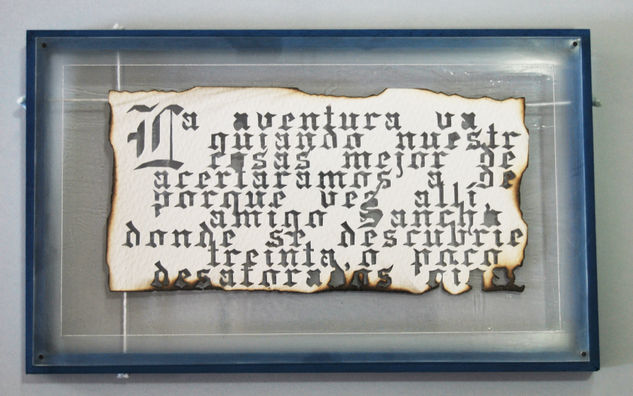 La aventura va
guiando nuestr
cosas mejor de
acertaramos a de
porque ves allí
amigo Sancho
donde se descubrie
treinta o poco
desaforados